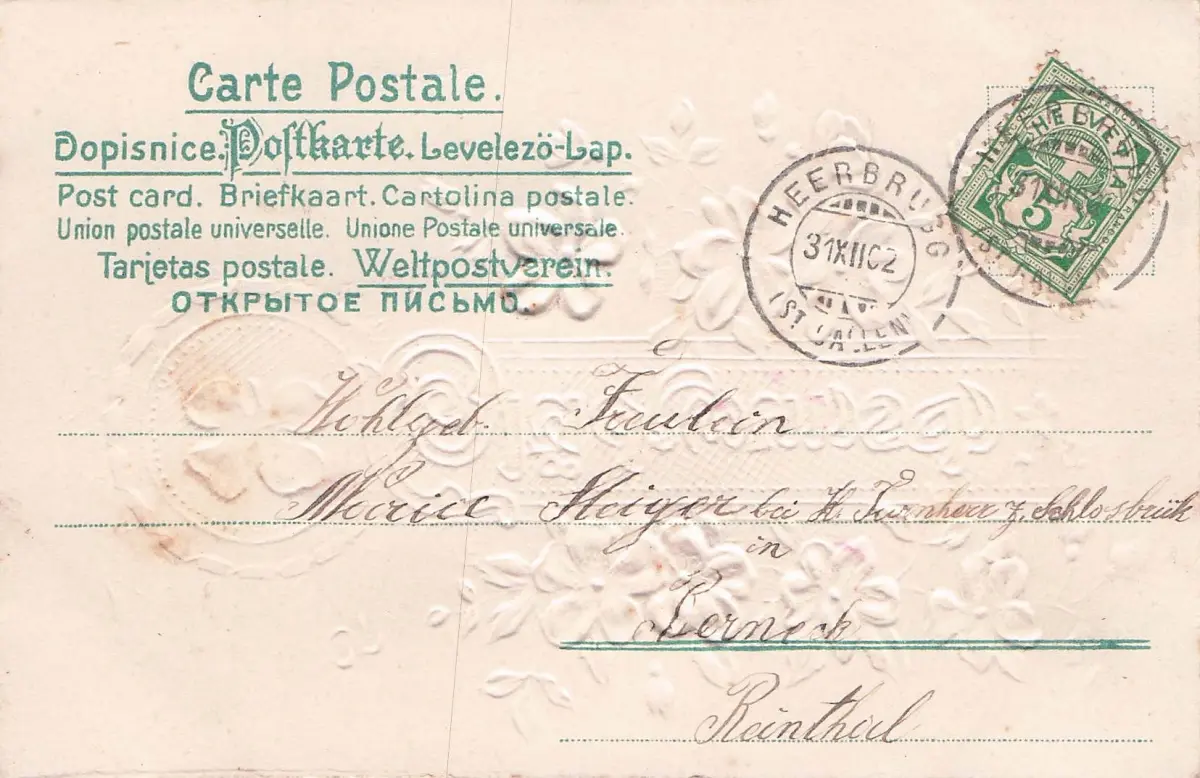 Carte Postale.
Dopisnice. Postkarte. Levelezö-Lap.
Post card. Briefkaart. Cartolina postale.
Union postale universelle. Unione Postale universale.
Tarjetas postale. Weltpostverein.
ОТКРЫТОЕ ПИСЬМО.
HELVETIA
5
HEERBRUGG
31 XII 02
(ST. GALLEN)
Wohlgeb. Fräulein
Marie Steiger bei H. Turnherr z. Schlosbrük
in
Berneck
Reinthal